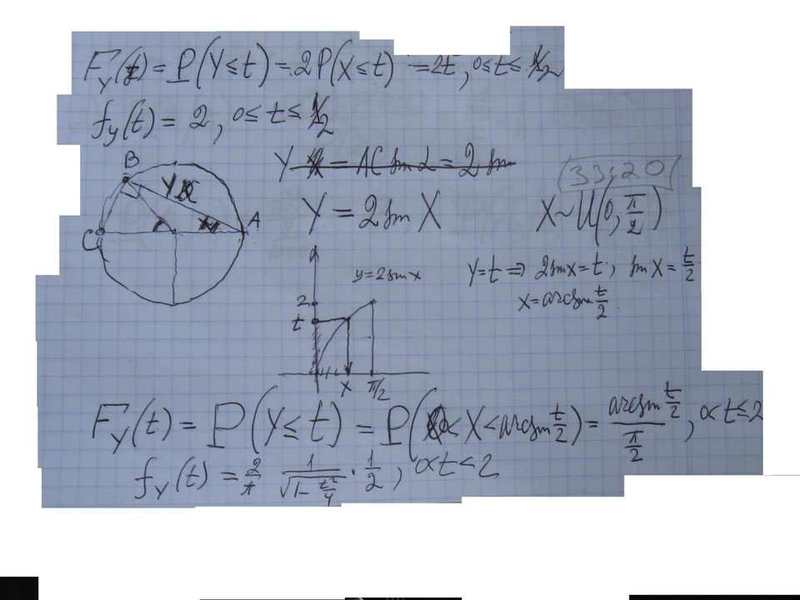 F_Y(t) = P(Y ≤ t) = 2P(X ≤ t) = 2t, 0 ≤ t ≤ 1/2
f_Y(t) = 2, 0 ≤ t ≤ 1/2
B
Y = AC sin α = 2 sin
33,20
Y
C
A
Y = 2 sin X
X ~ U(0, π/2)
y = 2 sin x
Y = t ⇒ 2 sin X = t, sin X = t/2
X = arcsin t/2
2
t
x
π/2
F_Y(t) = P(Y ≤ t) = P(0 < X < arcsin t/2) = (arcsin t/2)/(π/2), 0 < t ≤ 2
f_Y(t) = 2/π · 1/√(1 - t²/4) · 1/2, 0 < t < 2